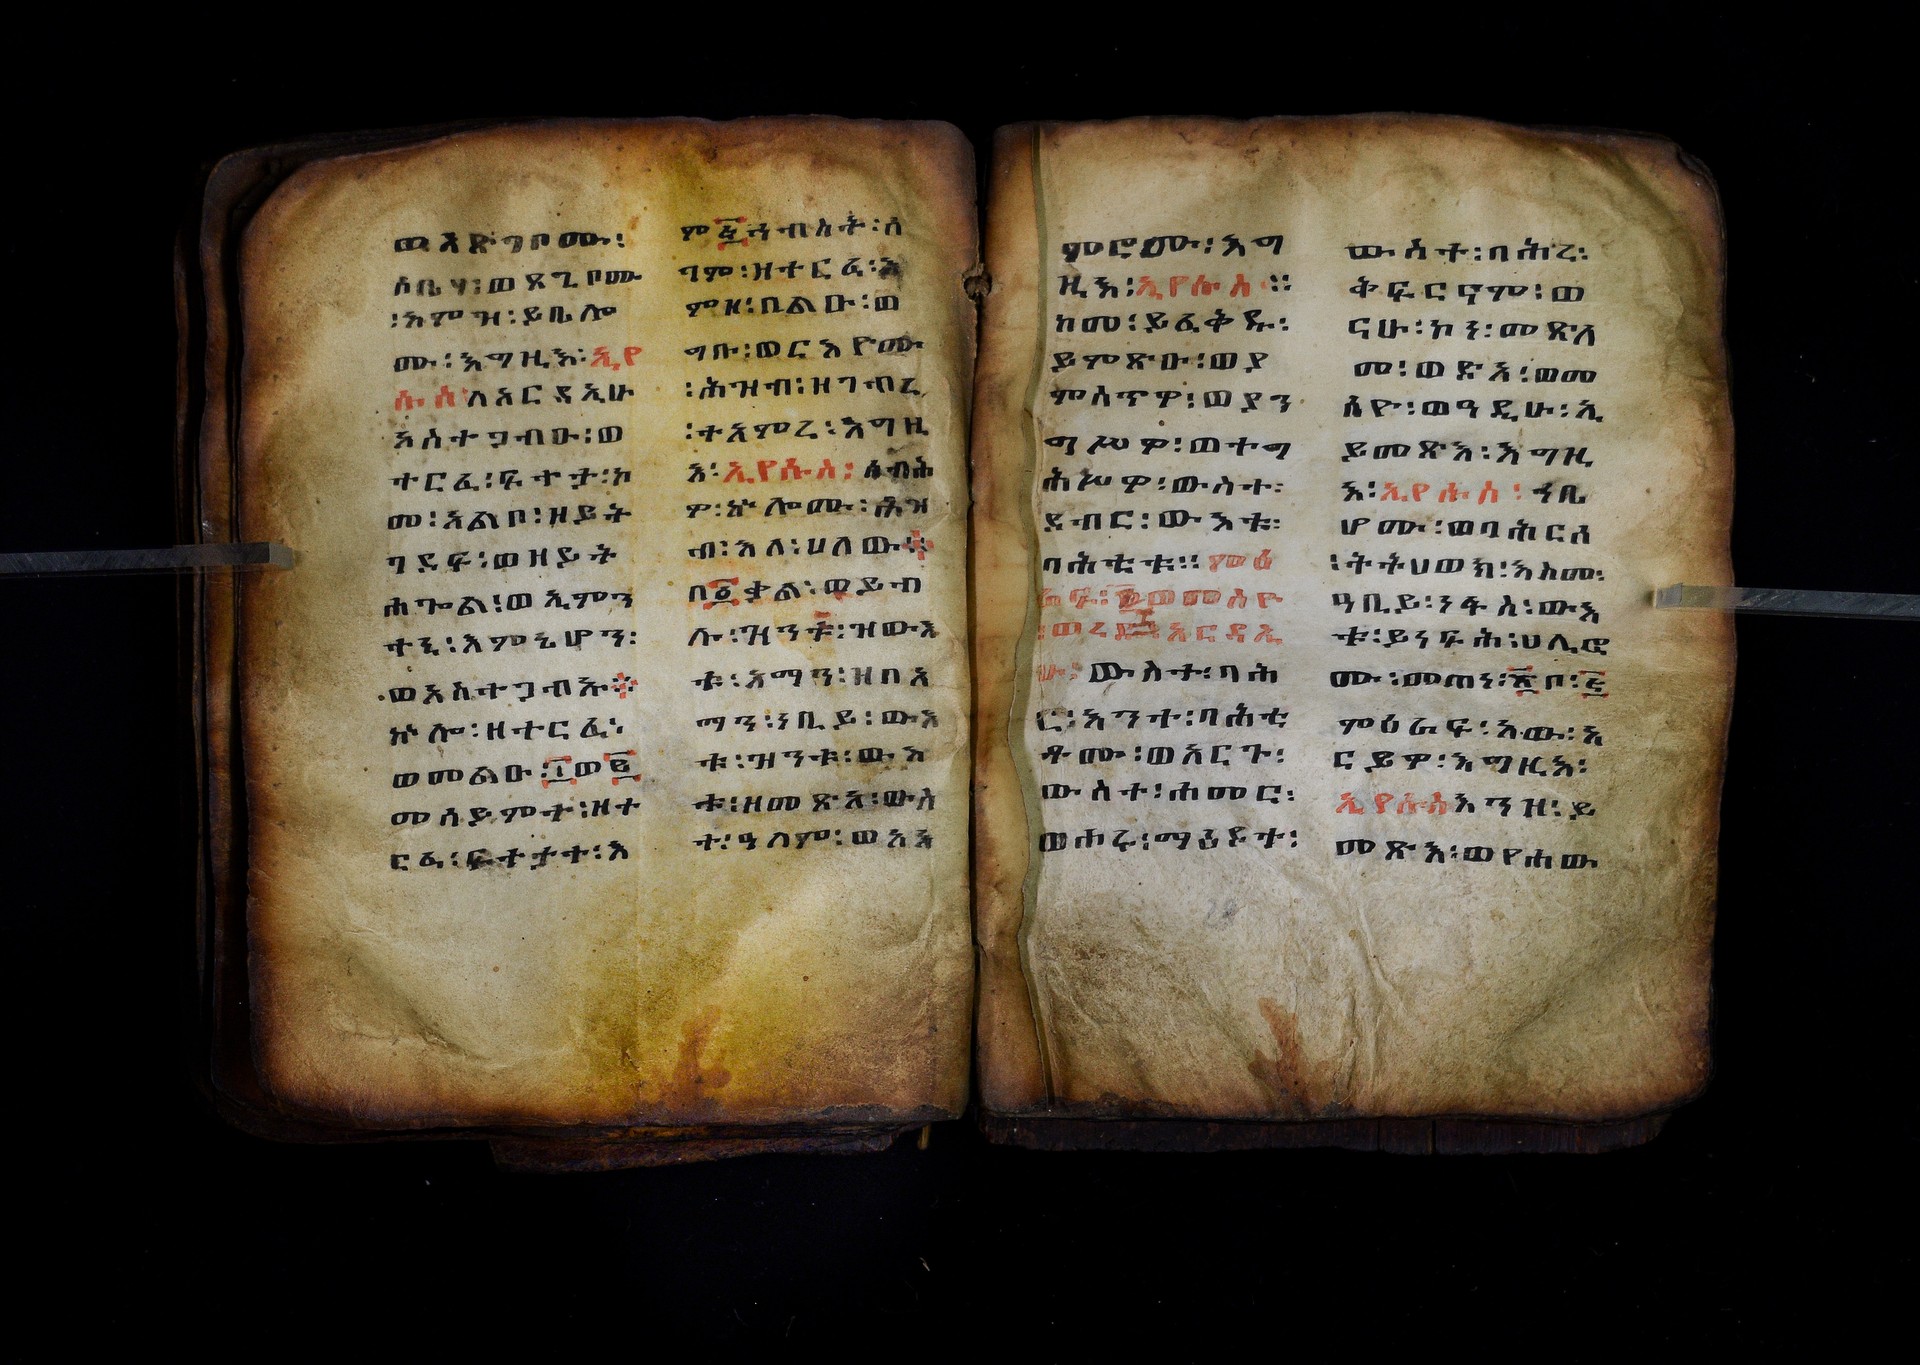 ወእጽግቦሙ፡
ሰቤሃ፡ወጸጊቦሙ
፡እምዝ፡ይቤሎ
ሙ፡እግዚእ፡ኢየ
ሱስ፡ለአርዳኢሁ
አስተጋብኡ፡ወ
ተርፈ፡ፍተታ፡ከ
መ፡አልቦ፡ዘይት
ገደፍ፡ወዘይት
ሐጐል፡ወኢምንት
ተኒ፡እምኔሆን፡
ወአስተጋብኡ፨
ኵሎ፡ዘተርፈ፡
ወመልዑ፡፲ወ፪
መሰይምተ፡ዘተ
ርፈ፡ፍተታተ፡እ
ም፭ኅብስት፡ሰ
ገም፡ዘተርፈ፡እ
ምዘ፡በልዑ፡ወ
ግቡ፡ወርእዮሙ
፡ሕዝብ፡ዘገብረ
፡ተአምረ፡እግዚ
እ፡ኢየሱስ፡ሰብሕ
ዎ፡ኵሎሙ፡ሕዝ
ብ፡እለ፡ሀለው፨
በ፩ቃል፡ወይብ
ሉ፡ዝንቱ፡ዝውእ
ቱ፡አማን፡ዝበአ
ማን፡ነቢይ፡ውእ
ቱ፡ዝንቱ፡ውእ
ቱ፡ዘመጽአ፡ውስ
ተ፡ዓለም፡ወአእ
ምሮሙ፡እግ
ዚእ፡ኢየሱስ፡፡
ከመ፡ይፈቅዱ፡
ይምጽኡ፡ወያ
ምስጥዎ፡ወያን
ግሥዎ፡ወተግ
ሕሠ፡ውስተ፡
ደብር፡ውእቱ፡
ባሕቲቱ፡፡ምዕ
ራፍ፡ወመስየ
፡ወረዱ፡አርዳኢ
ሁ፡ውስተ፡ባሕ
ር፡እንተ፡ባሕቲ
ቶሙ፡ወአርጉ፡
ውስተ፡ሐመር፡
ወሖሩ፡ማዕዶተ፡
ውስተ፡ባሕረ፡
ቅፍርናም፡ወ
ናሁ፡ኮነ፡መጽለ
መ፡ወድአ፡ወመ
ስዮ፡ወዓዲሁ፡ኢ
ይመጽእ፡እግዚ
እ፡ኢየሱስ፡ኀቤ
ሆሙ፡ወባሕርሰ
፡ትትሀወክ፡እስመ፡
ዓቢይ፡ነፋስ፡ውእ
ቱ፡ይነፍሕ፡ሀሊዎ
ሙ፡መጠነ፡፳ቦ፡፭
ምዕራፍ፡አው፡አ
ርይዎ፡እግዚእ፡
ኢየሱስእንዘ፡ይ
መጽእ፡ወየሐው